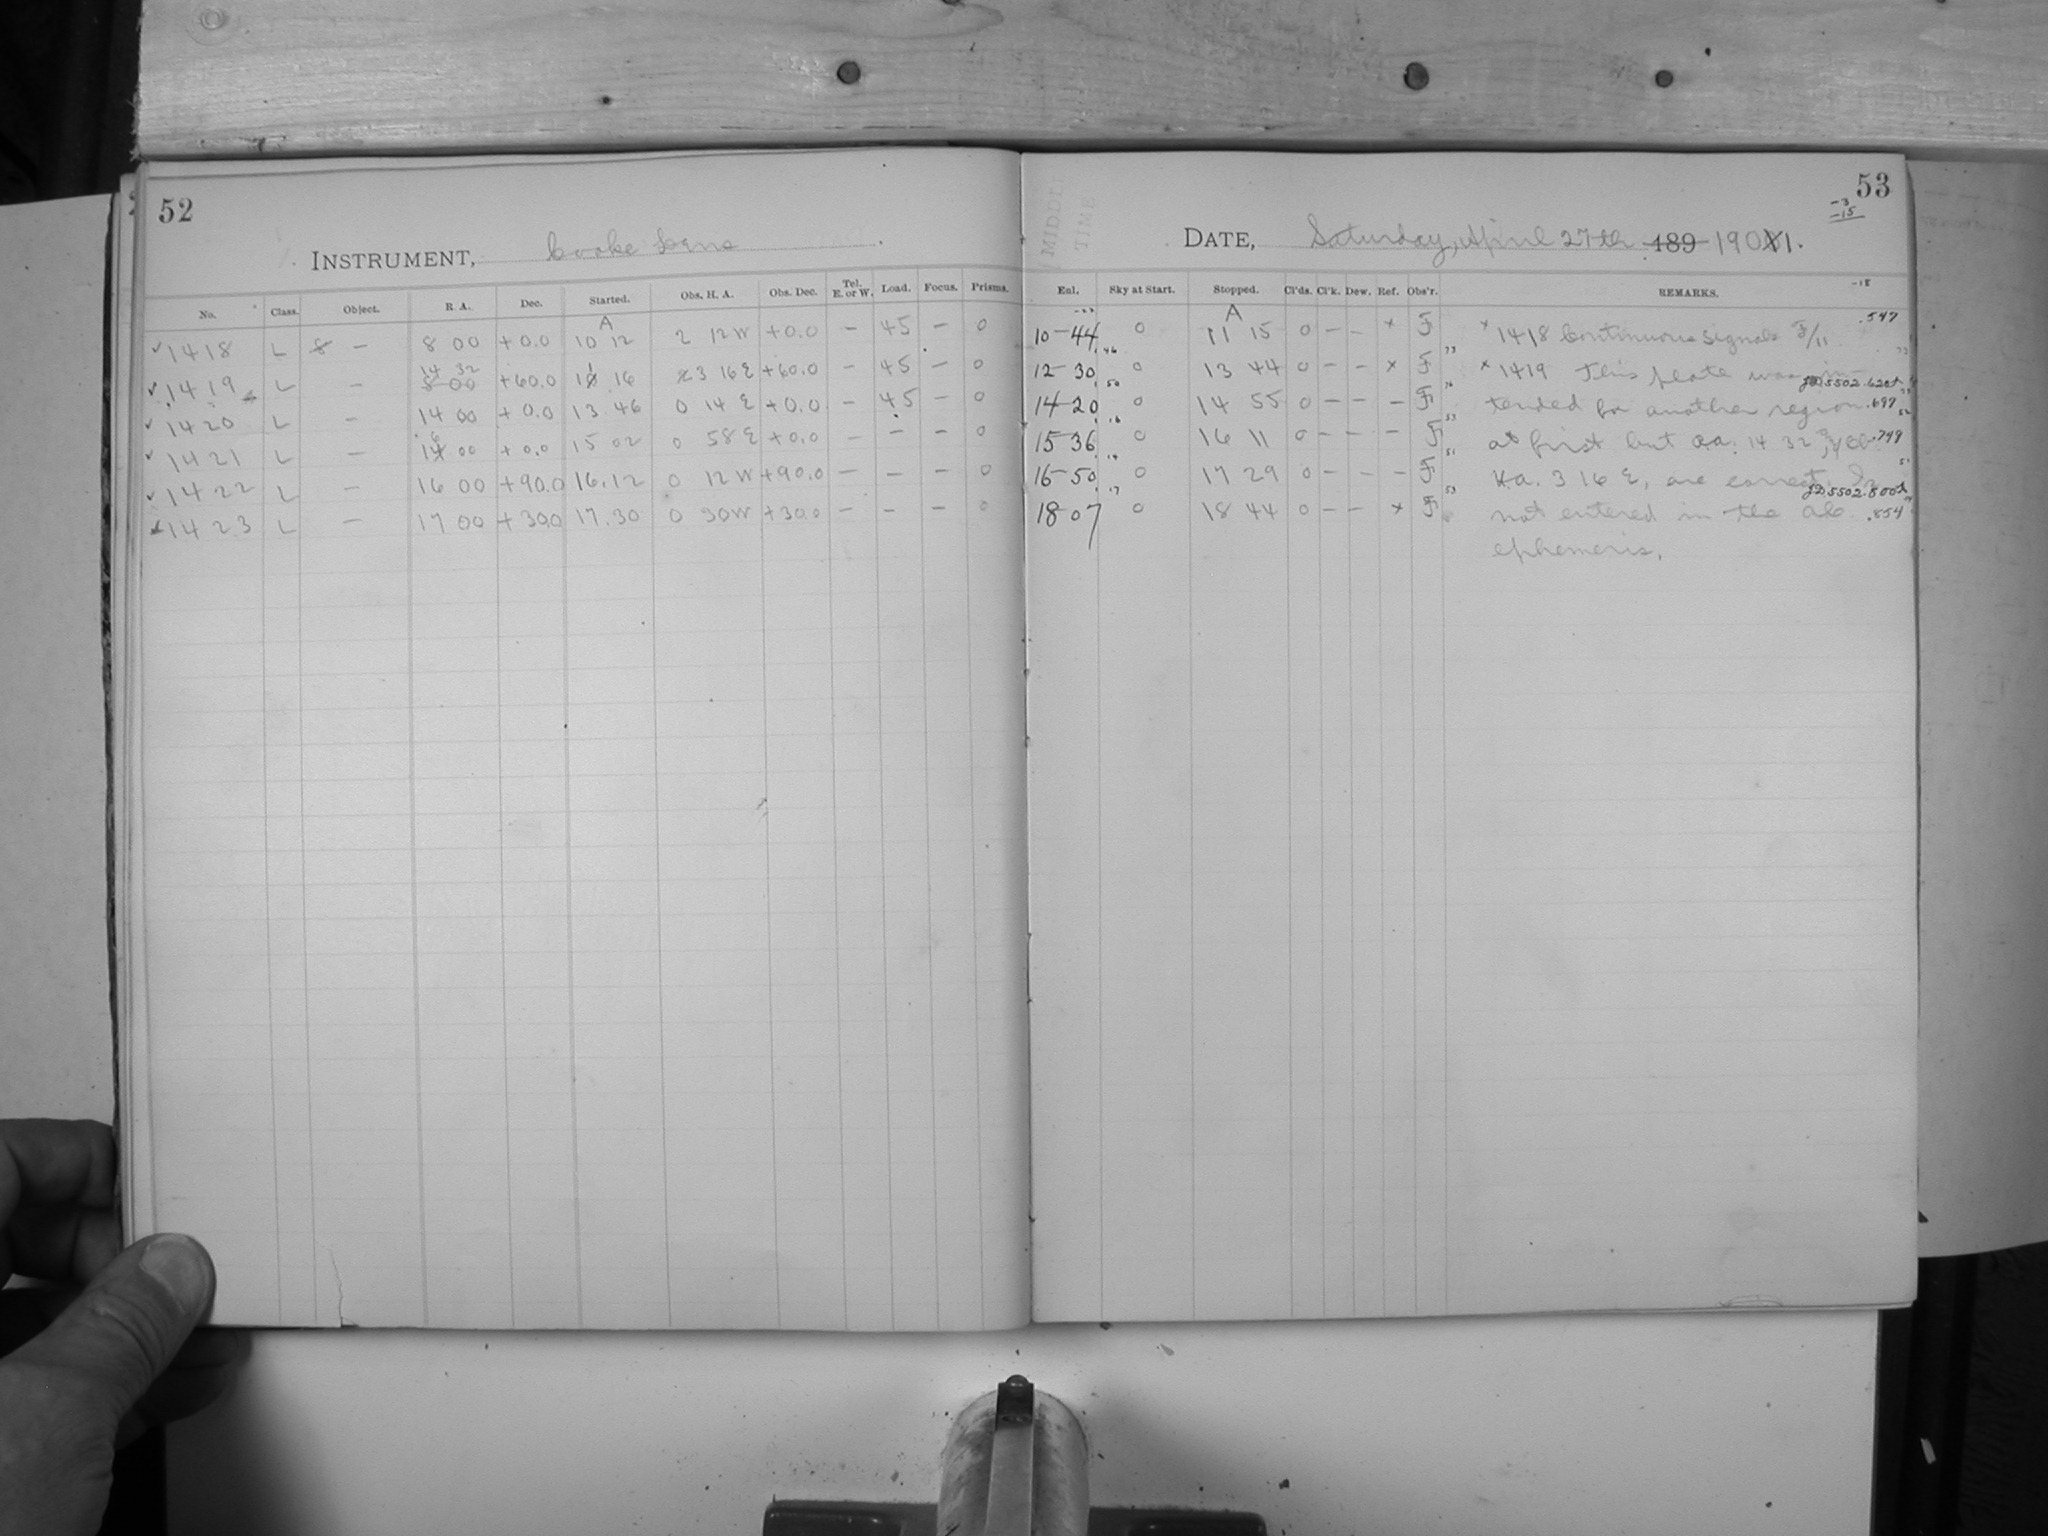 52
INSTRUMENT, Cooke Lens
No. Class. Object. R. A. Dec. Started. Obs. H. A. Obs. Dec. Tel. E. or W. Load. Focus. Prisms.
A
1418 L 8 – 8 00 +0.0 10 12 2 12 W +0.0 – 45 – 0
14 32
1419 L – 8 00 +60.0 11 16 3 16 E +60.0 – 45 – 0
1420 L – 14 00 +0.0 13 46 0 14 E +0.0 – 45 – 0
1421 L – 16 00 +0.0 15 02 0 58 E +0.0 – – – 0
1422 L – 16 00 +90.0 16.12 0 12 W +90.0 – – – 0
1423 L – 17 00 +30.0 17.30 0 30 W +30.0 – – – 0
53
-3
-15
MIDDLE
TIME
DATE, Saturday, April 27th 189 1901.
-18
Enl. Sky at Start. Stopped. Cl'ds. Cl'k. Dew. Ref. Obs'r. REMARKS.
A
10-44 0 11 15 0 – – × F × 1418 Continuous signals F/11 .547
12-30 0 13 44 0 – – × F × 1419 This plate was in-
JD.5502.620
14-20 0 14 55 0 – – – F tended for another region .697
15 36 0 16 11 0 – – – F at first but R.A. 14 32 .749
16-50 0 17 29 0 – – – F H.a. 3 16 E, are correct. Is
JD.5502.800
18 07 0 18 44 0 – – × F not entered in the ob. .854
ephemeris.